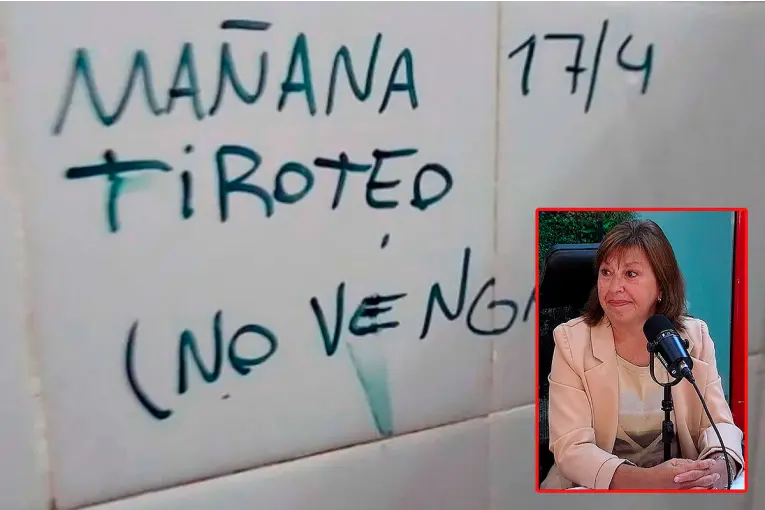 MAÑANA 17/4
TIROTEO
(NO VENG